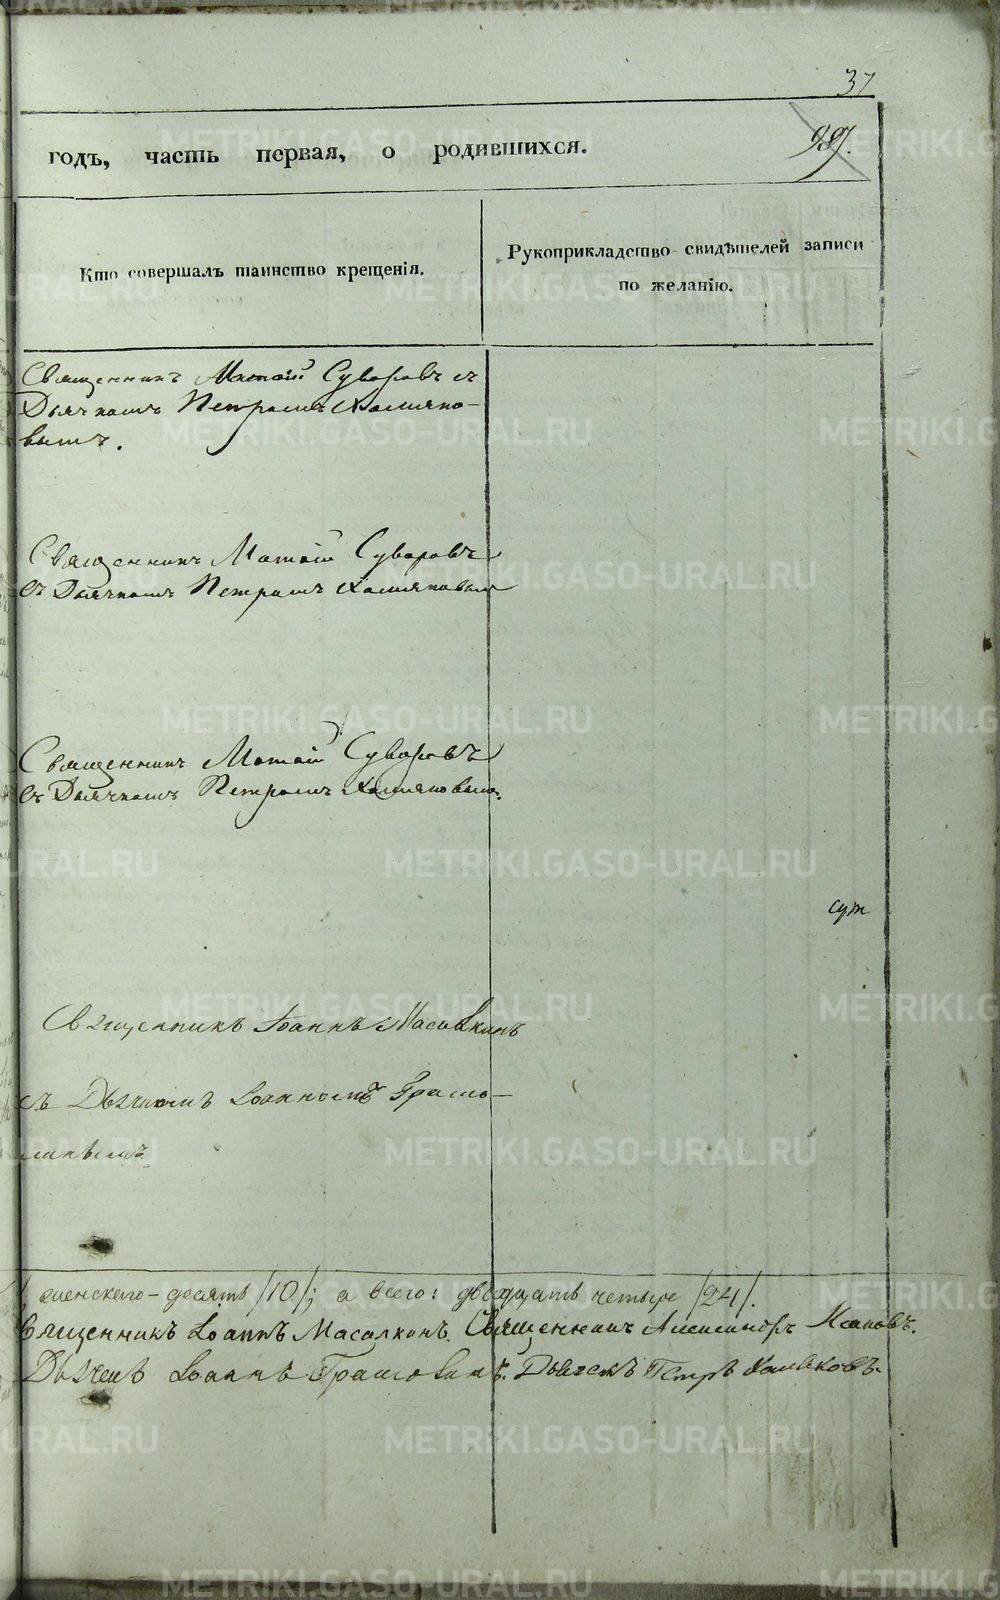 37
годъ, часть первая, о родившихся.
997.
Кто совершалъ таинство крещенія.
Рукоприкладство свидѣтелей записи
по желанію.
Священникъ Матѳій Суворовъ съ
Дьячкомъ Петромъ Хомяко-
вымъ.
Священникъ Матѳій Суворовъ
съ Дьячкомъ Петромъ Хомяковымъ
Священникъ Матѳій Суворовъ
съ Дьячкомъ Петромъ Хомяковымъ.
Священникъ Іоаннъ Масалкинъ
съ Дьячкомъ Іоанномъ
женскаго - десять /10/; а всего: двадцать четыре /24/.
Священникъ Іоаннъ Масалкинъ. Священникъ Александръ
Дьячекъ Іоаннъ Дьячекъ Петръ Хомяковъ.
METRIKI.GASO-URAL.RU